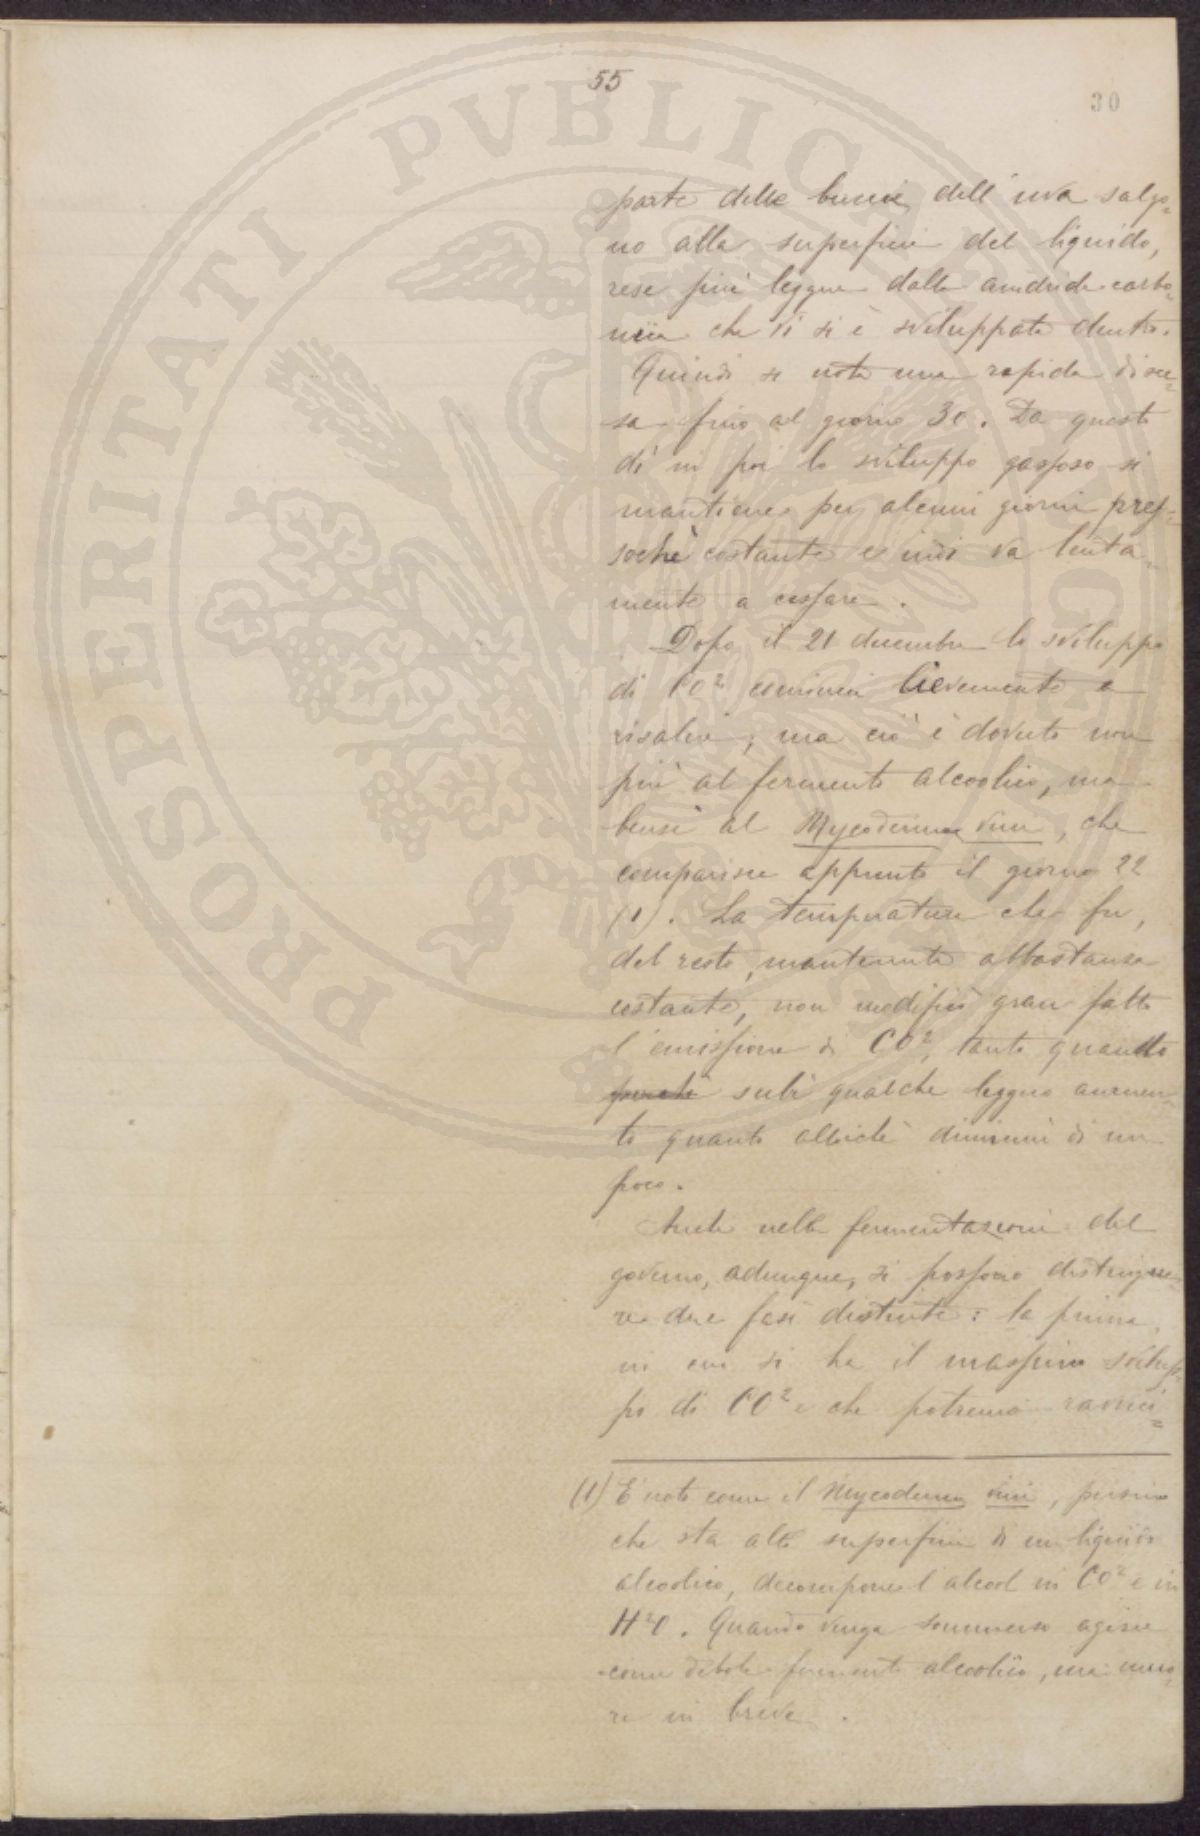 55
30
parte delle buccie dell'uva salgo=
no alla superficie del liquido,
rese più leggere dalla anidride carbo=
nica che vi si è sviluppata dentro.
Quindi si nota una rapida disce=
sa fino al giorno 30. Da questo
dì in poi lo sviluppo gassoso si
mantiene per alcuni giorni pres=
sochè costante e indi va lenta=
mente a cessare.
Dopo il 21 dicembre lo sviluppo
di CO² comincia lievemente a
risalire; ma ciò è dovuto non
più al fermento alcoolico, ma
bensì al Mycoderma vini, che
comparisce appunto il giorno 22
(1). La temperatura che fu,
del resto, mantenuta abbastanza
costante, non modificò gran fatto
l'emissione di CO², tanto quando
perchè subì qualche leggero aumen=
to quanto allorchè diminuì di un
poco.
Anche nella fermentazione del
governo, adunque, si possono distingue=
re due fasi distinte: la prima,
in cui si ha il massimo svilup=
po di CO² e che potremo ravvici=
(1) È noto come il Mycoderma vini, persino
che sta alla superficie di un liquido
alcoolico, decompone l'alcool in CO² e in
H²O. Quando venga sommerso agisce
come debole fermento alcoolico, ma muo=
re in breve.
PROSPERITATI PVBLICAE AVGENDAE